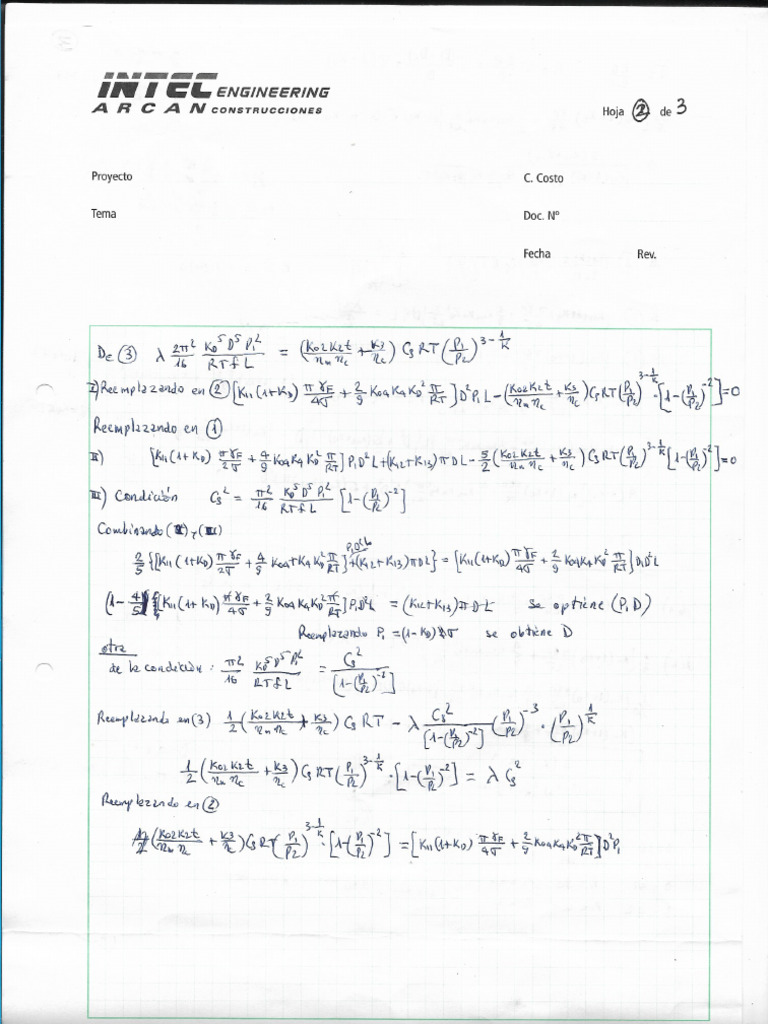 INTEC ENGINEERING
ARCAN CONSTRUCCIONES
Hoja ② de 3
Proyecto
C. Costo
Tema
Doc. N°
Fecha Rev.
De ③ λ 2π²/16 K_D⁵ D⁵ P₁²/(R T f L) = (K₀₂K₂t/(η_m η_c) + K₃/η_c) C_s R T (P₁/P₂)^(3-1/K)
I) Reemplazando en ② [K₁₁(1+K_D) πγ_F/4σ + 2/9 K₀₄K₄K_D² π/RT] D²P₁L - (K₀₂K₂t/(η_m η_c) + K₃/η_c) C_s RT (P₁/P₂)^(3-1/K) · [1-(P₁/P₂)^-2] = 0
Reemplazando en ①
II) [K₁₁(1+K_D) πγ_F/2σ + 4/9 K₀₄K₄K_D² π/RT] P₁D²L + (K₁₂+K₁₃)πDL - 5/2 (K₀₂K₂t/(η_m η_c) + K₃/η_c) C_s RT (P₁/P₂)^(3-1/K) [1-(P₁/P₂)^-2] = 0
III) Condición C_s² = π²/16 K_D⁵ D⁵ P₁²/(R T f L) [1-(P₁/P₂)^-2]
Combinando (I) y (II)
2/5 {[K₁₁(1+K_D) πγ_F/2σ + 4/9 K₀₄K₄K_D² π/RT] P₁D²L + (K₁₂+K₁₃)πDL} = [K₁₁(1+K_D) πγ_F/4σ + 2/9 K₀₄K₄K_D² π/RT] P₁D²L
(1-4/5) {[K₁₁(1+K_D) πγ_F/4σ + 2/9 K₀₄K₄K_D² π/RT] P₁D²L = (K₁₂+K₁₃)πDL se obtiene (P₁D)
Reemplazando P₁ = (1-K_D)2σ se obtiene D
otra
de la condición: π²/16 K_D⁵ D⁵ P₁²/(R T f L) = C_s²/[1-(P₁/P₂)^-2]
Reemplazando en (3) 1/2 (K₀₂K₂t/(η_m η_c) + K₃/η_c) C_s RT - λ C_s²/[1-(P₁/P₂)^-2] (P₁/P₂)^-3 · (P₁/P₂)^(1/K)
1/2 (K₀₂K₂t/(η_m η_c) + K₃/η_c) C_s RT (P₁/P₂)^(3-1/K) · [1-(P₁/P₂)^-2] = λ C_s²
Reemplazando en ②
(K₀₂K₂t/(η_m η_c) + K₃/η_c) C_s RT (P₁/P₂)^(3-1/K) · [1-(P₁/P₂)^-2] = [K₁₁(1+K_D) πγ_F/4σ + 2/9 K₀₄K₄K_D² π/RT] D²P₁